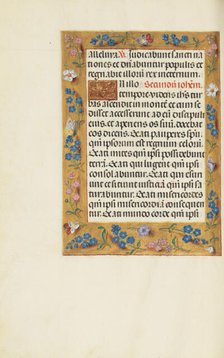 alleluia. Judicabunt sancti na
tiones et dñabuntur populis et
regnabit illorū rex ineternum.
In illo Secundū
tempore videns ihs tur
bas ascendit in montem et cum se
disset accesserunt ad eum discipuli
eius, et aperiens os suū docebat
eos dicens. Beati pauperes spū
qm̄ ipsorum est regnum celorum.
Beati mites qm̄ ipsi possidebūt
terrā. Beati qui lugent qm̄ ipsi
consolabuntur. Beati qui esuri
unt et sitiunt iusticiā qm̄ ipsi sa
turabuntur. Beati misericordes
qm̄ ipsi misericordiā consequen
tur. Beati mundo corde qm̄ ipsi